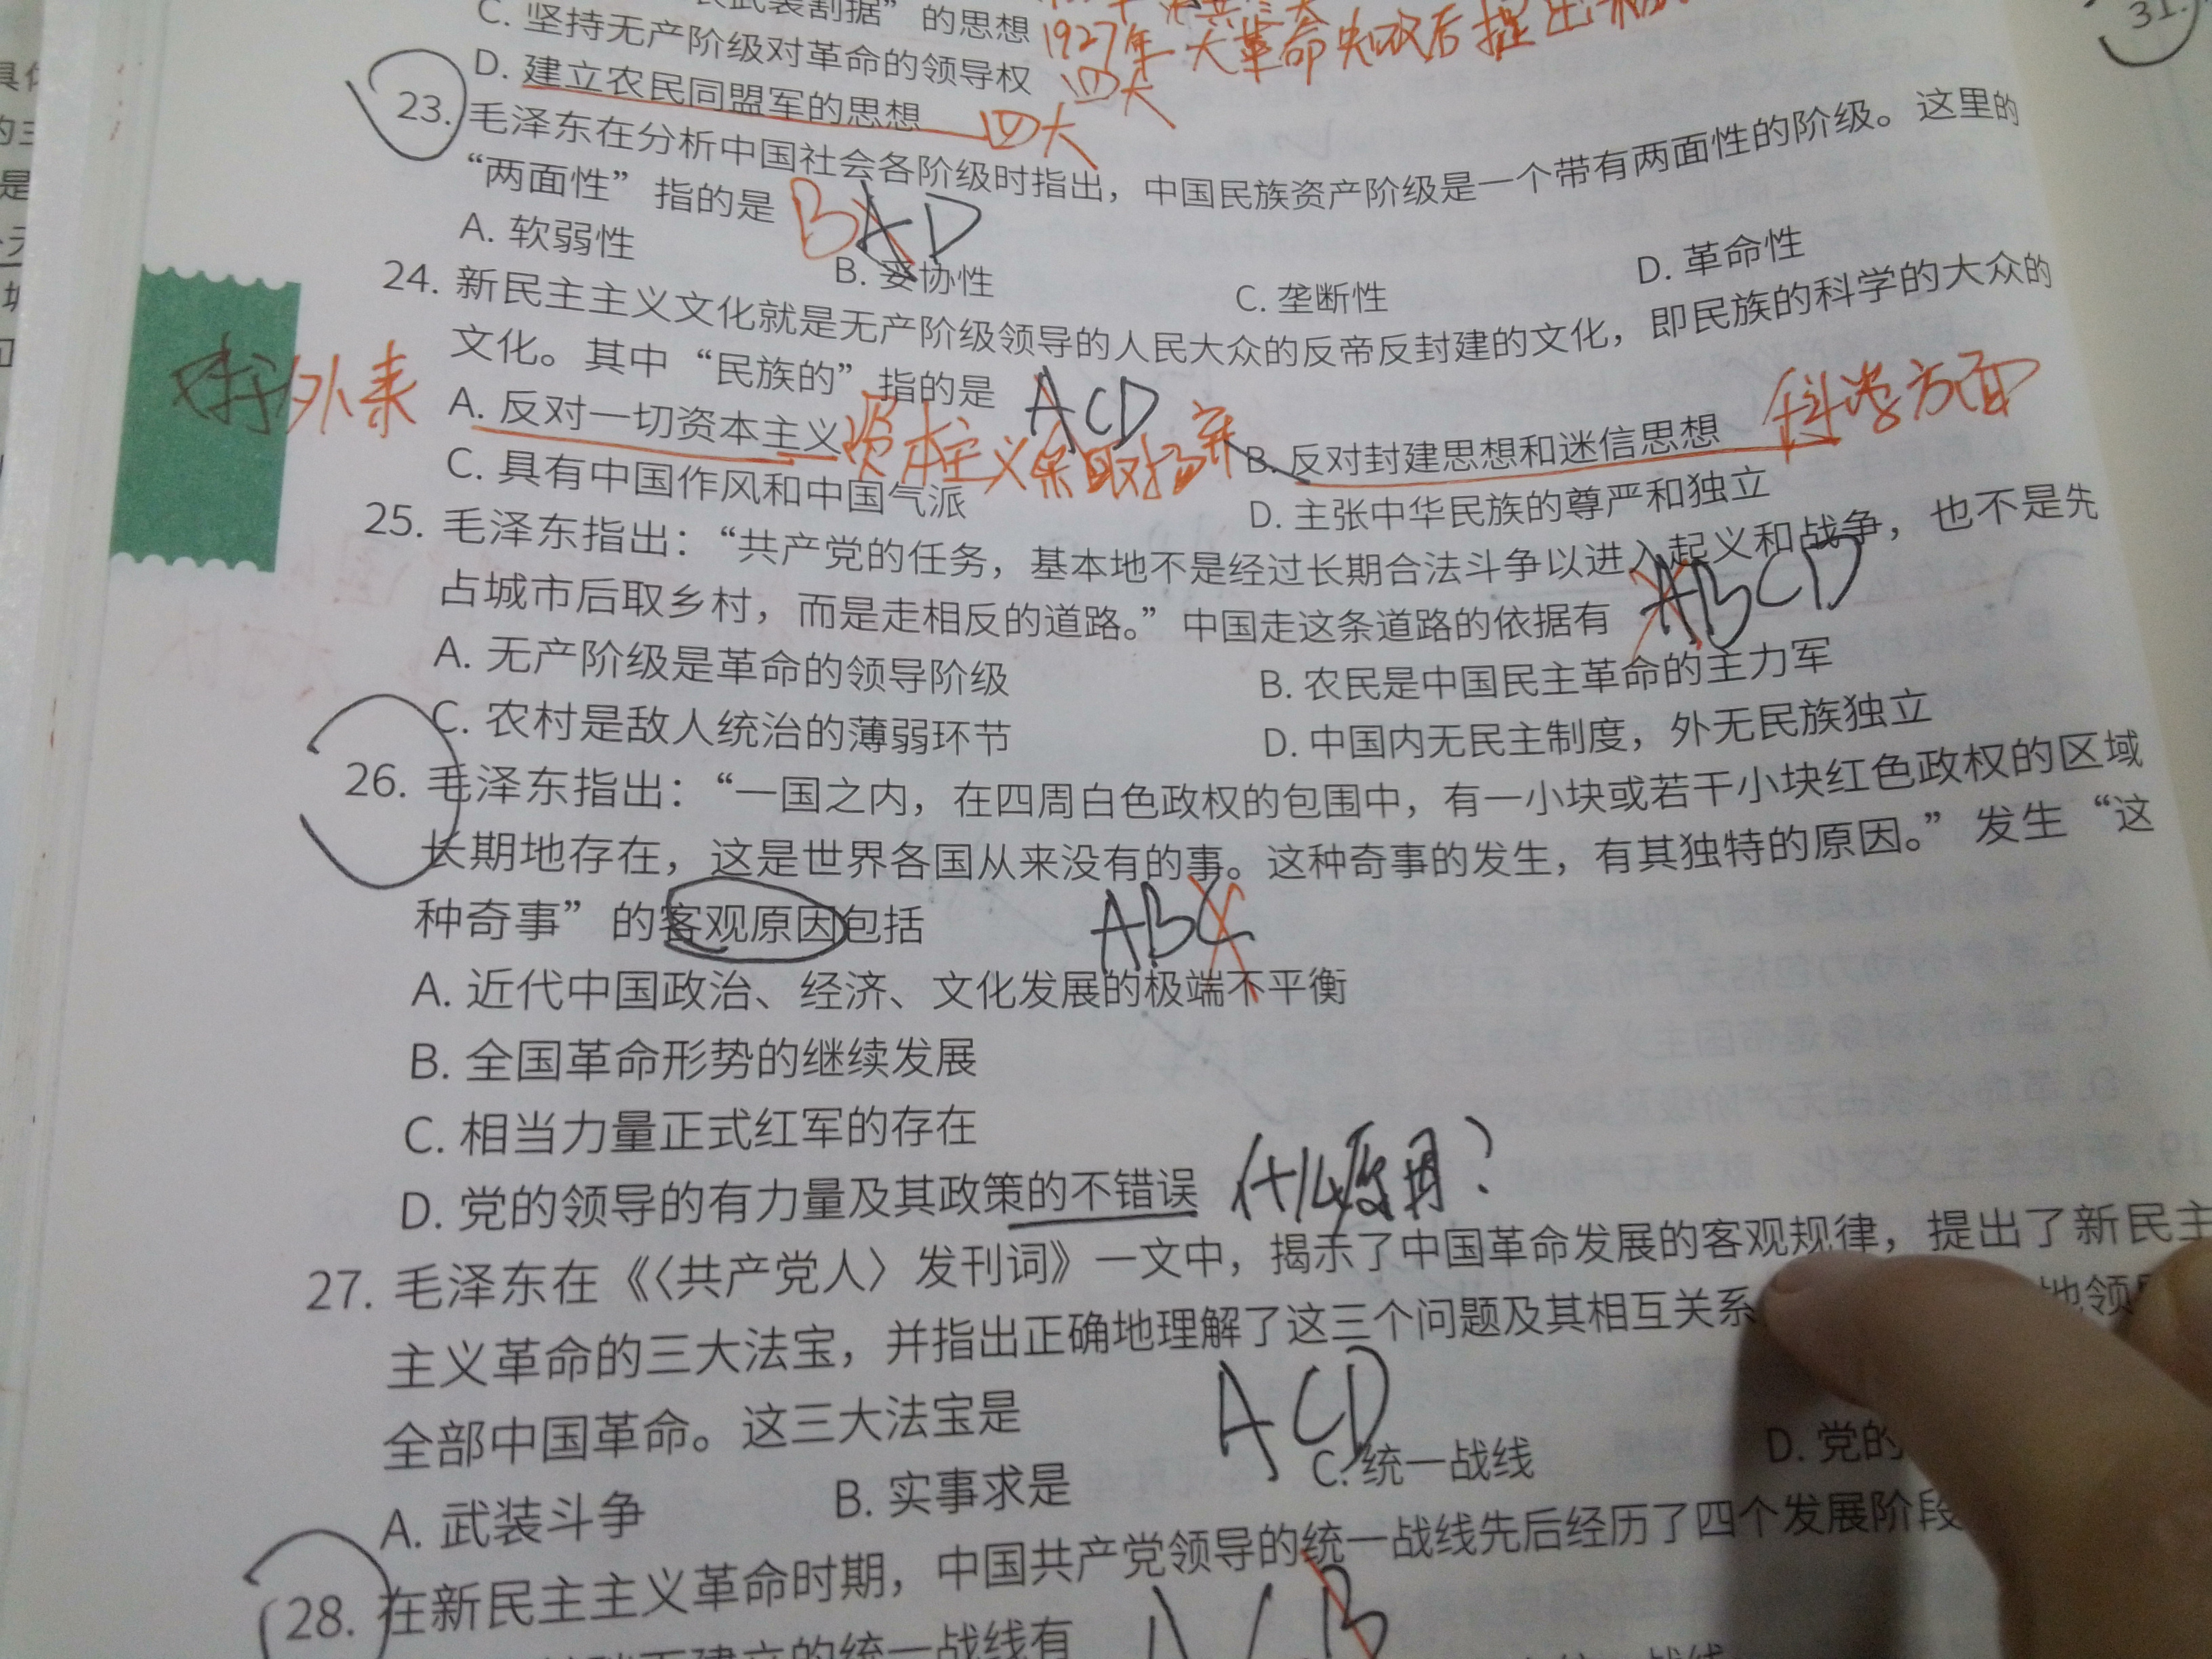 农武装割据”的思想
C. 坚持无产阶级对革命的领导权
1927年 大革命失败后提出
D. 建立农民同盟军的思想
四大
四大
31.
23. 毛泽东在分析中国社会各阶级时指出，中国民族资产阶级是一个带有两面性的阶级。这里的
“两面性”指的是
B AD
A. 软弱性
B. 妥协性
C. 垄断性
D. 革命性
24. 新民主主义文化就是无产阶级领导的人民大众的反帝反封建的文化，即民族的科学的大众的
文化。其中“民族的”指的是
ACD
对于外来
A. 反对一切资本主义
资本主义采取扬弃
B. 反对封建思想和迷信思想
科学方面
C. 具有中国作风和中国气派
D. 主张中华民族的尊严和独立
25. 毛泽东指出：“共产党的任务，基本地不是经过长期合法斗争以进入起义和战争，也不是先
占城市后取乡村，而是走相反的道路。”中国走这条道路的依据有
ABCD
A. 无产阶级是革命的领导阶级
B. 农民是中国民主革命的主力军
C. 农村是敌人统治的薄弱环节
D. 中国内无民主制度，外无民族独立
26. 毛泽东指出：“一国之内，在四周白色政权的包围中，有一小块或若干小块红色政权的区域
长期地存在，这是世界各国从来没有的事。这种奇事的发生，有其独特的原因。”发生“这
种奇事”的客观原因包括
ABC
A. 近代中国政治、经济、文化发展的极端不平衡
B. 全国革命形势的继续发展
C. 相当力量正式红军的存在
D. 党的领导的有力量及其政策的不错误
27. 毛泽东在《〈共产党人〉发刊词》一文中，揭示了中国革命发展的客观规律，提出了新民主
主义革命的三大法宝，并指出正确地理解了这三个问题及其相互关系
地领
全部中国革命。这三大法宝是
ACD
A. 武装斗争
B. 实事求是
C. 统一战线
D. 党的
28. 在新民主主义革命时期，中国共产党领导的统一战线先后经历了四个发展阶段
建立的统一战线有